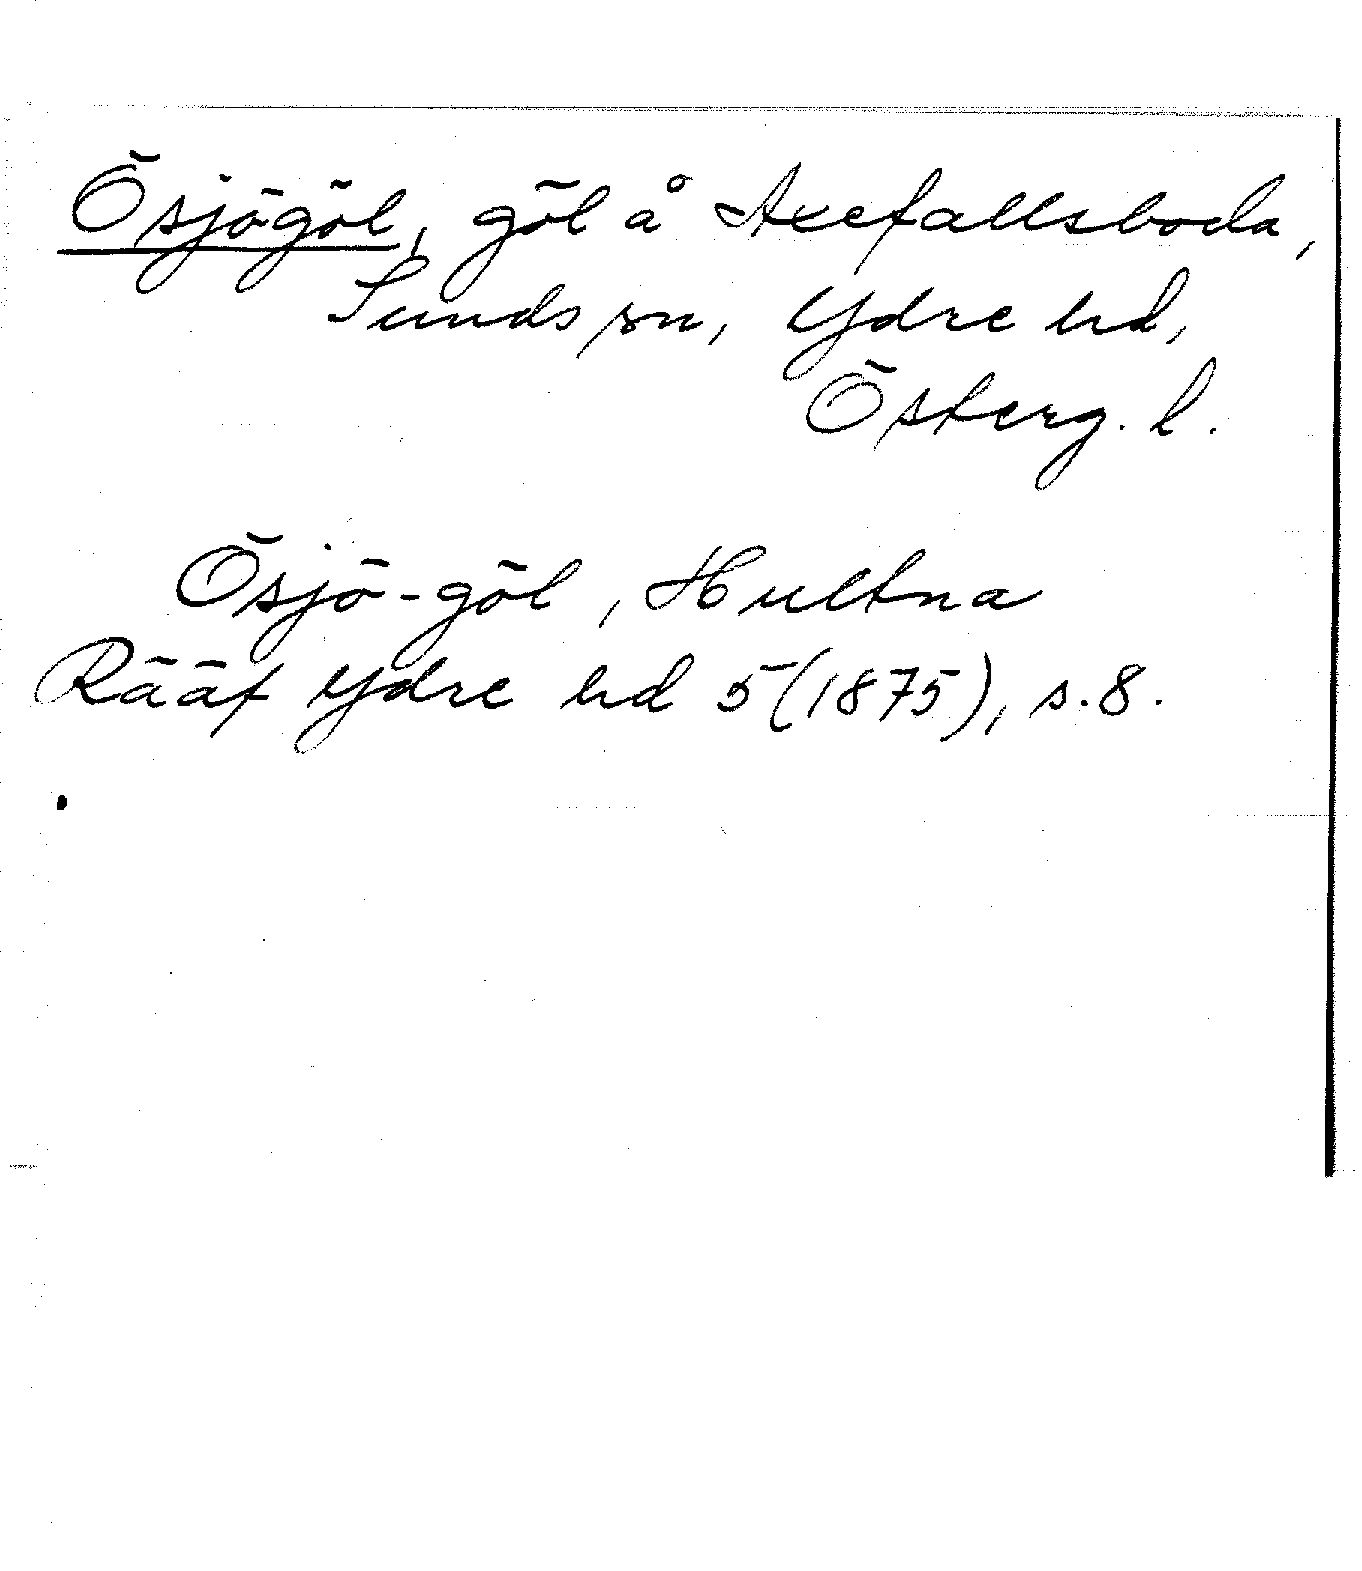 Ösjögöl, göl å Axefallsboda,
Sunds sn, Ydre hd,
Österg. l.
Ösjö-göl, Hultna
Rääf Ydre hd 5 (1875), s. 8.